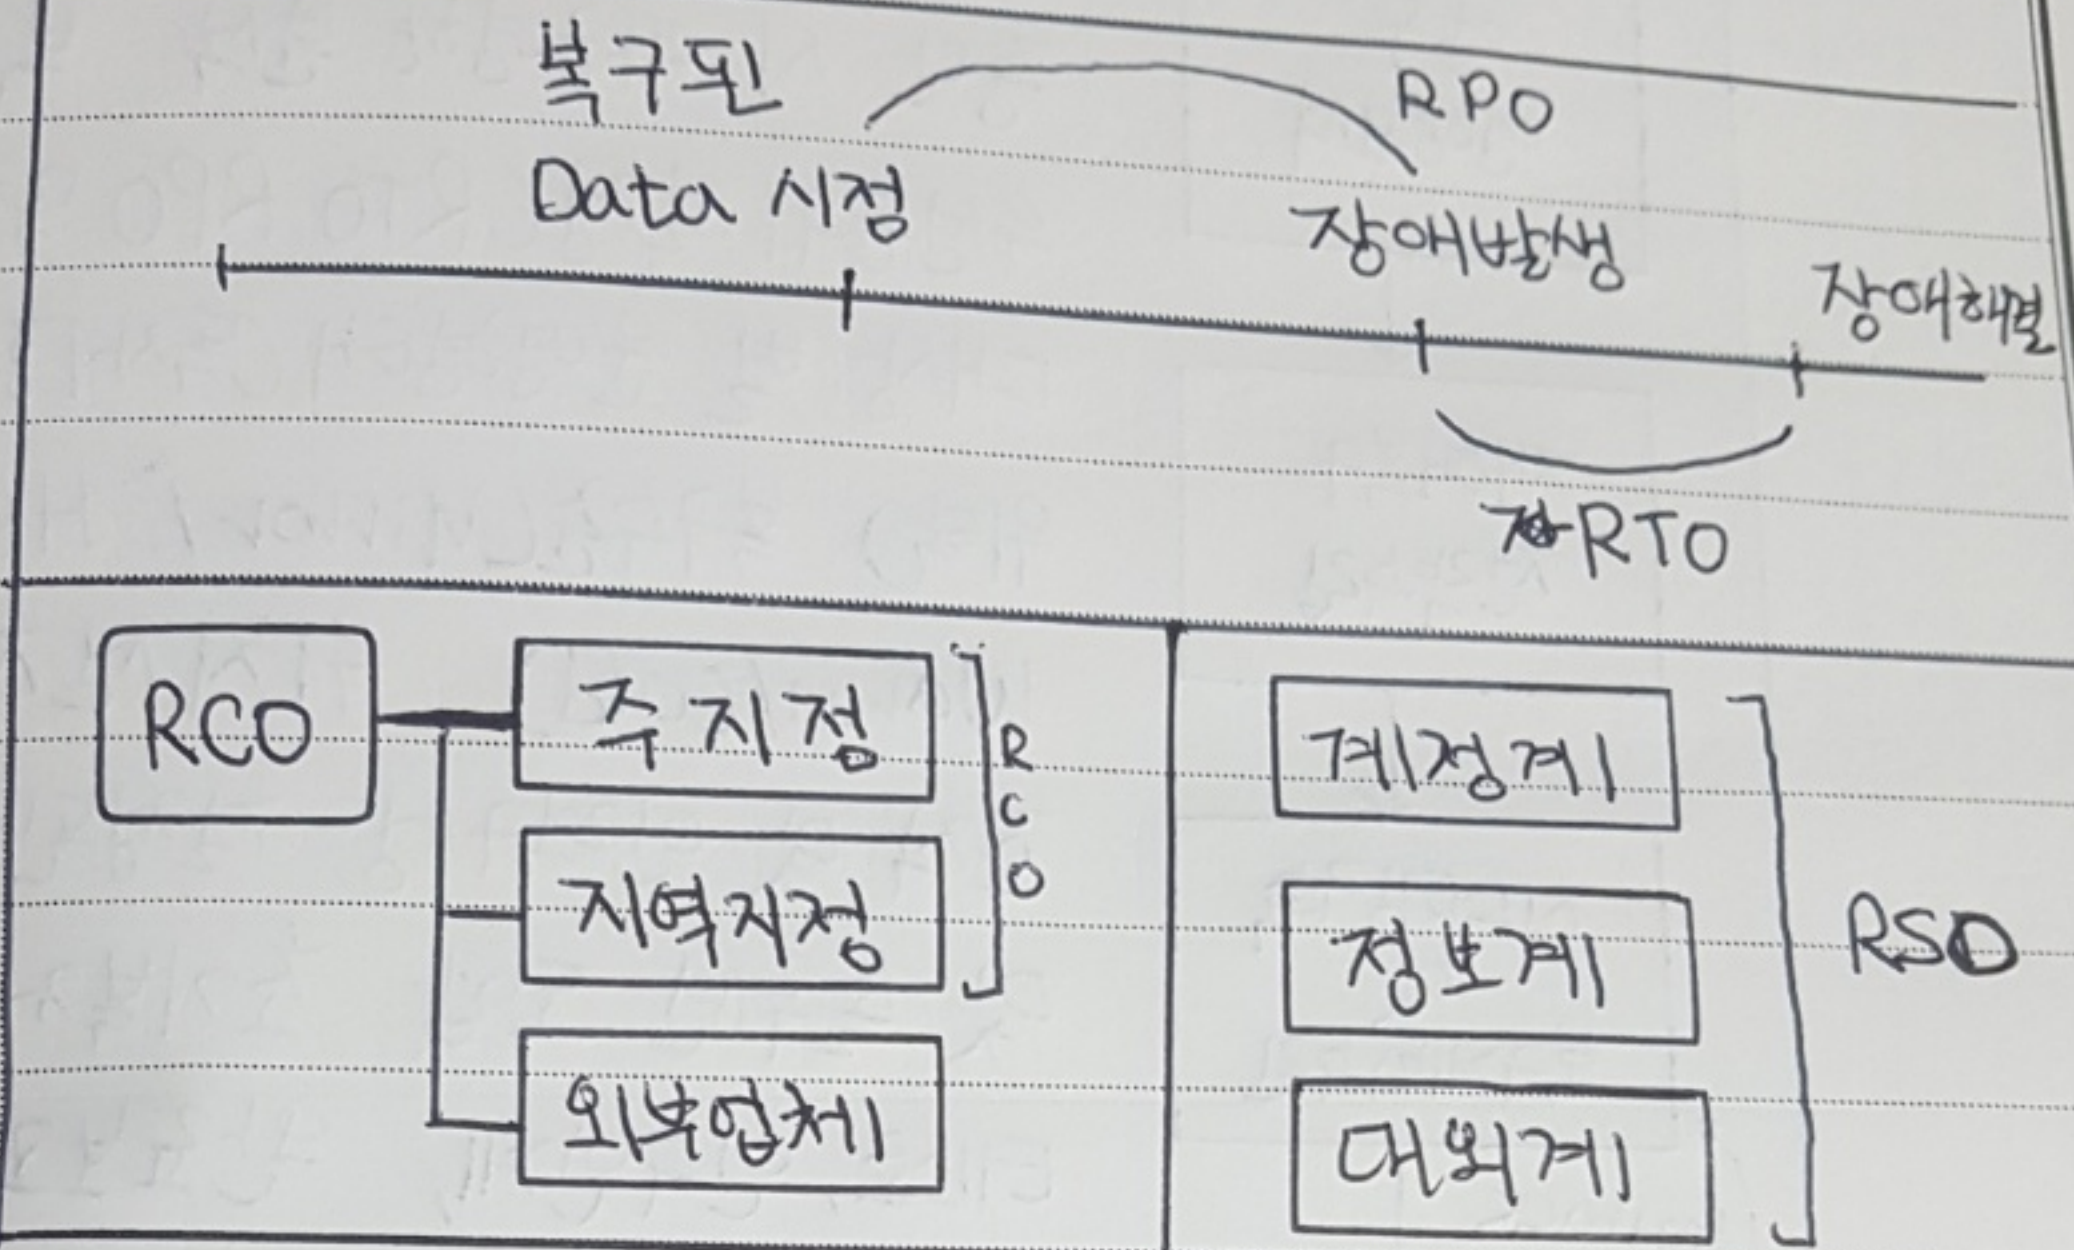 복구된
RPO
Data 시점
장애발생
장애해결
RTO
RCO
주지점
지역지점
외부업체
RCO
계정계
정보계
대외계
RSO